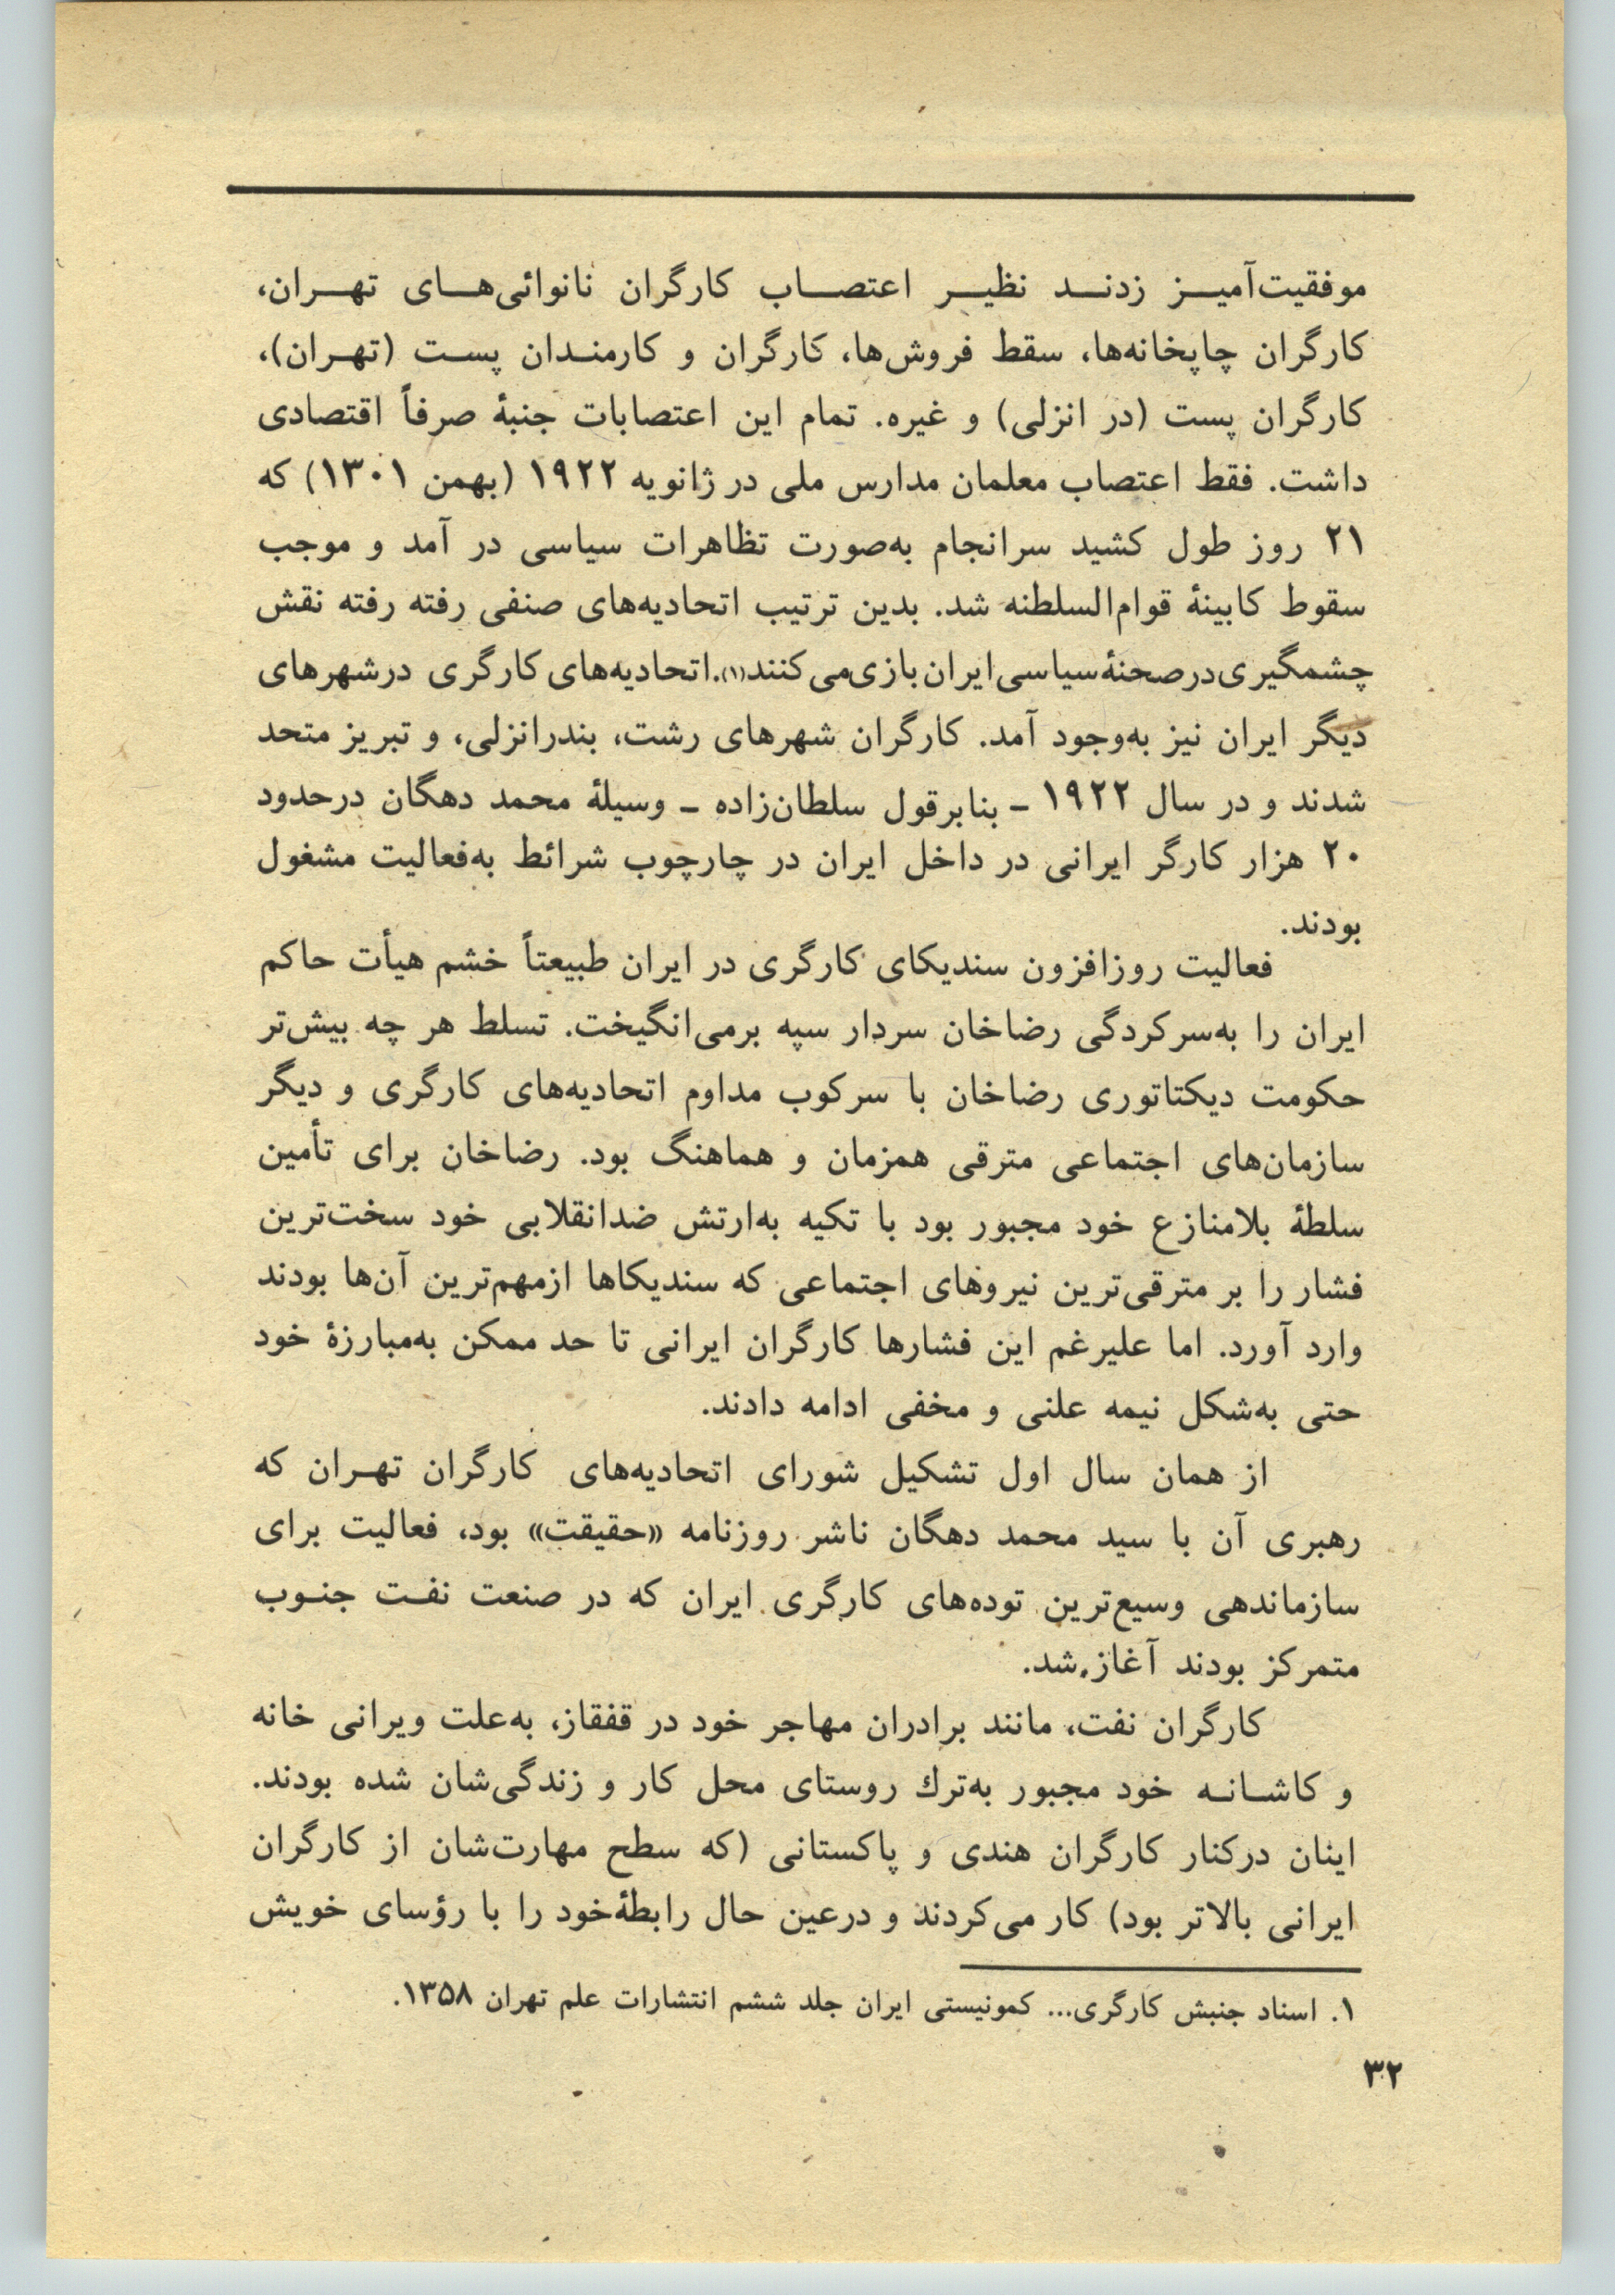 موفقیت‌آمیـز زدنـد نظیـر اعتصـاب کارگران نانوائی‌هـای تهـران،
کارگران چاپخانه‌ها، سقط فروش‌ها، کارگران و کارمنـدان پسـت (تهـران)،
کارگران پست (در انزلی) و غیره. تمام این اعتصابات جنبهٔ صرفاً اقتصادی
داشت. فقط اعتصاب معلمان مدارس ملی در ژانویه ۱۹۲۲ (بهمن ۱۳۰۱) که
۲۱ روز طول کشید سرانجام به‌صورت تظاهرات سیاسی در آمد و موجب
سقوط کابینهٔ قوام‌السلطنه شد. بدین ترتیب اتحادیه‌های صنفی رفته رفته نقش
چشمگیری‌درصحنهٔ‌سیاسی‌ایران‌بازی‌می‌کنند(۱).اتحادیه‌های کارگری درشهرهای
دیگر ایران نیز به‌وجود آمد. کارگران شهرهای رشت، بندرانزلی، و تبریز متحد
شدند و در سال ۱۹۲۲ – بنابرقول سلطان‌زاده – وسیلهٔ محمد دهگان درحدود
۲۰ هزار کارگر ایرانی در داخل ایران در چارچوب شرائط به‌فعالیت مشغول
بودند.
فعالیت روزافزون سندیکای کارگری در ایران طبیعتاً خشم هیأت حاکم
ایران را به‌سرکردگی رضاخان سردار سپه برمی‌انگیخت. تسلط هر چه بیش‌تر
حکومت دیکتاتوری رضاخان با سرکوب مداوم اتحادیه‌های کارگری و دیگر
سازمان‌های اجتماعی مترقی همزمان و هماهنگ بود. رضاخان برای تأمین
سلطهٔ بلامنازع خود مجبور بود با تکیه به‌ارتش ضدانقلابی خود سخت‌ترین
فشار را بر مترقی‌ترین نیروهای اجتماعی که سندیکاها ازمهم‌ترین آن‌ها بودند
وارد آورد. اما علیرغم این فشارها کارگران ایرانی تا حد ممکن به‌مبارزهٔ خود
حتی به‌شکل نیمه علنی و مخفی ادامه دادند.
از همان سال اول تشکیل شورای اتحادیه‌های کارگران تهـران که
رهبری آن با سید محمد دهگان ناشر روزنامه «حقیقت» بود، فعالیت برای
سازماندهی وسیع‌ترین توده‌های کارگری ایران که در صنعت نفـت جنـوب
متمرکز بودند آغاز شد.
کارگران نفت، مانند برادران مهاجر خود در قفقاز، به‌علت ویرانی خانه
و کاشـانـه خود مجبور به‌ترك روستای محل کار و زندگی‌شان شده بودند.
اینان درکنار کارگران هندی و پاکستانی (که سطح مهارت‌شان از کارگران
ایرانی بالاتر بود) کار می‌کردند و درعین حال رابطهٔ‌خود را با رؤسای خویش
۱. اسناد جنبش کارگری... کمونیستی ایران جلد ششم انتشارات علم تهران ۱۳۵۸.
۳۲